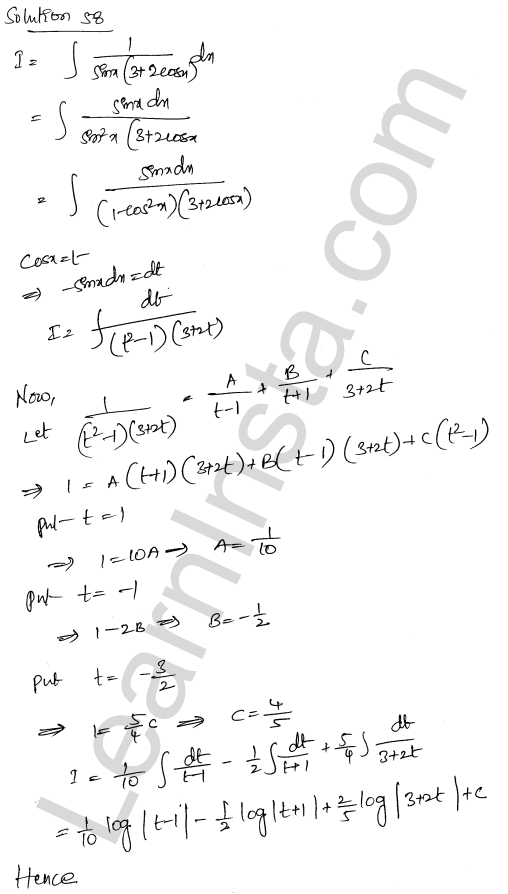 Solution 58
I = ∫ 1/(sinx(3+2cosx)) dx
= ∫ sinx dx/(sin²x (3+2cosx
= ∫ sinx dx/((1-cos²x)(3+2cosx))
Cosx = t
⇒ -sinx dx = dt
I = ∫ dt/((t²-1)(3+2t))
Now,
Let 1/((t²-1)(3+2t)) = A/(t-1) + B/(t+1) + C/(3+2t)
⇒ 1 = A(t+1)(3+2t)+B(t-1)(3+2t)+C(t²-1)
put t = 1
⇒ 1=10A → A = 1/10
put t = -1
⇒ 1-2B ⇒ B = -1/2
put t = -3/2
⇒ 1 = 5/4 C ⇒ C = 4/5
I = 1/10 ∫ dt/(t-1) - 1/2 ∫ dt/(t+1) + 5/4 ∫ dt/(3+2t)
= 1/10 log|t-1| - 1/2 log|t+1| + 2/5 log|3+2t| + c
Hence
LearnInsta.com